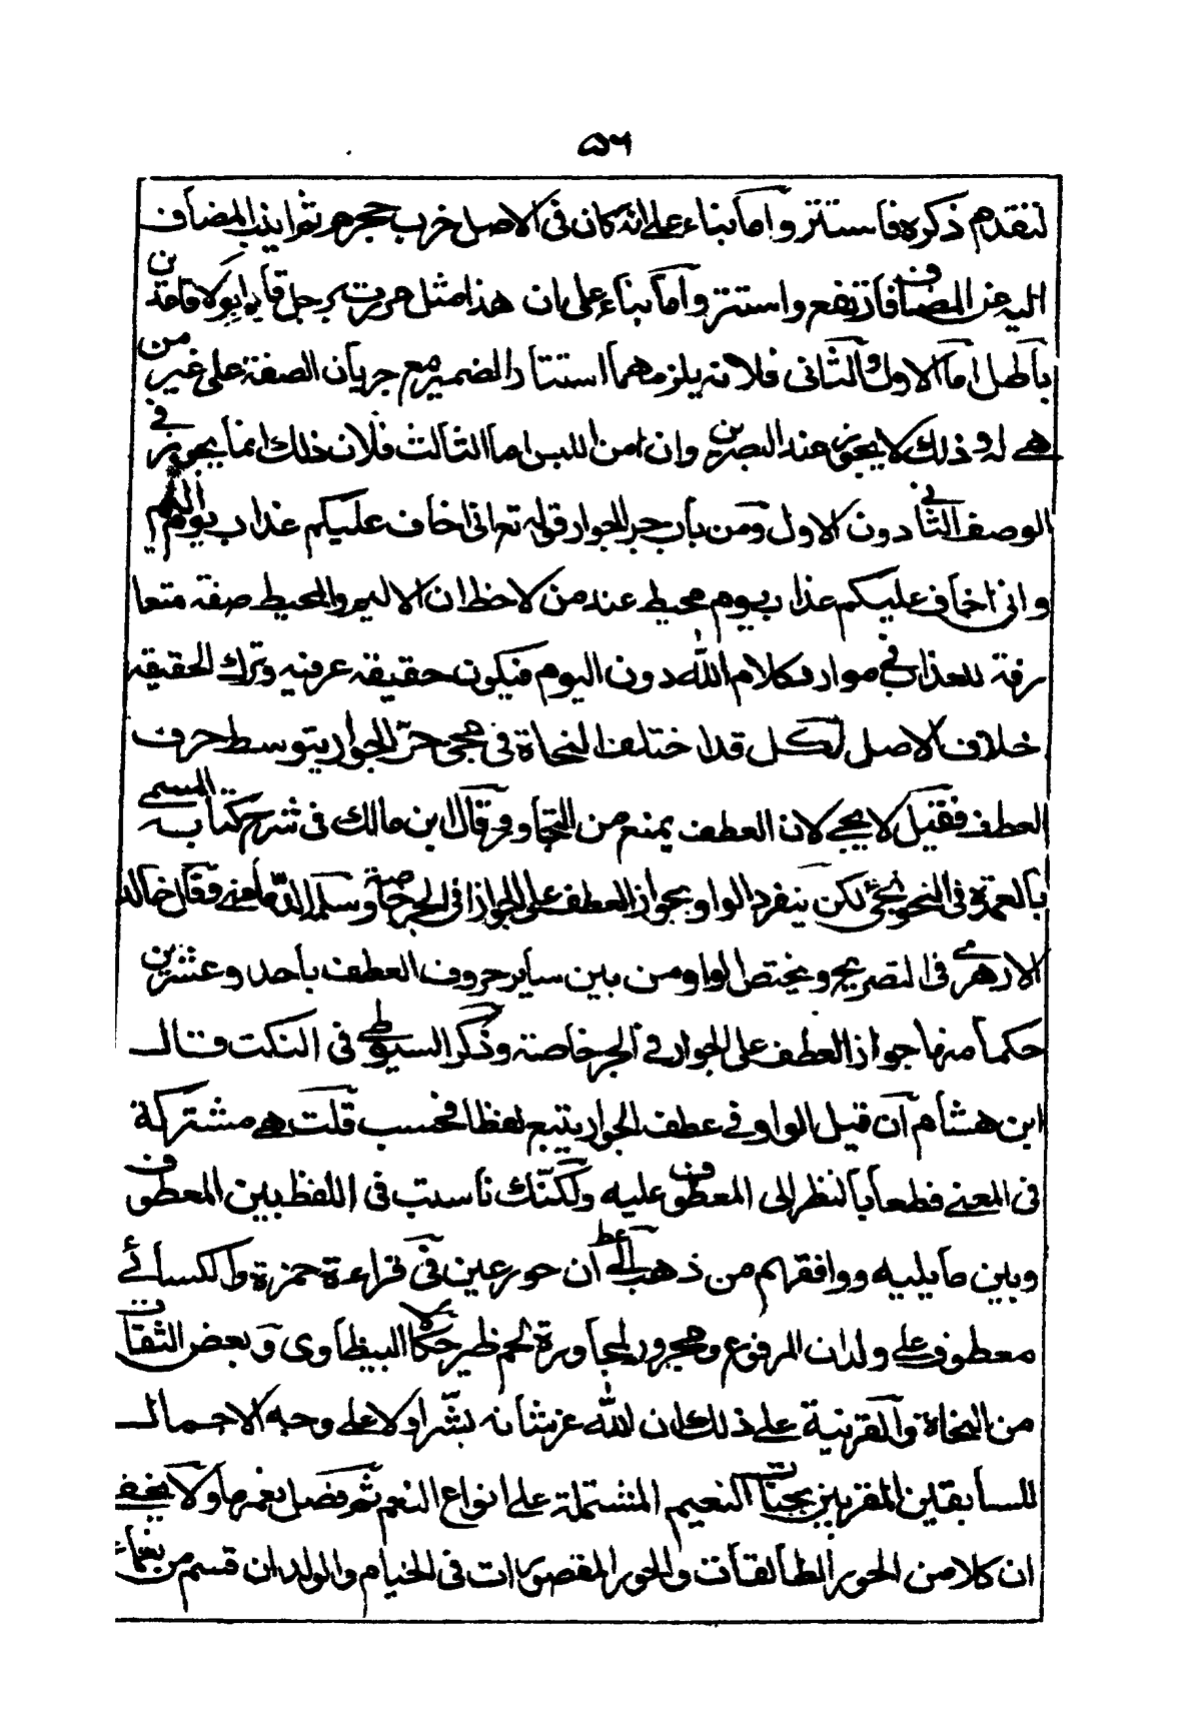 ٥٦
لتقدم ذكره فاستتر واما بناء على انه كان فى الاصل خرب حجره ثم انيب المضاف
اليه عن المضاف فارتفع واستتر واما بناء على ان هذا مثل مررت برجل قايم ابوه لا قاعدين
باطل اما الاول والثانى فلانه يلزمهما استتار الضمير مع جريان الصفة على غير من
هے له وذلك لا يجوز عند البصريين وان امن اللبس اما الثالث فلان ذلك انما يجوز فے
الوصف الثانے دون الاول ومن باب جر الجوار قوله تعالى اخاف عليكم عذاب يوم اليم
وانى اخاف عليكم عذاب يوم محيط عند من لاحظ ان الاليم والمحيط صفة متعا
رفة للعذاب فے موارد كلام الله دون اليوم فيكون حقيقه عرفيه وترك الحقيقه
خلاف الاصل لكل قد اختلف النحاة فى مجئ جر الجوار بتوسط حرف
العطف فقيل لا يجے لان العطف يمنع من التجاور وقال ابن مالك فى شرح كتابه المسمى
بالعمدة فى النحو يجئ لكن ينفرد الواو بجواز العطف على الجوار فى الجر خاصة وسلم الدمامينے فقال خالد
الازهرے فى التصريح ويختص الواو من بين ساير حروف العطف باحد وعشرين
حكما منها جواز العطف على الجوار فے الجر خاصة وذكر السيوطے فى النكت قال
ابن هشام ان قيل الواو فے عطف الجوار يتبع لفظا فحسب قلت هے مشتركة
فى المعنے قطعا بالنظر الى المعطوف عليه ولكنك ناسبت فى اللفظ بين المعطوف
وبين ما يليه ووافقهم من ذهب الے ان حور عين فے قراءة حمزة والكسائے
معطوف على ولدان المرفوع ومجرور لمجاورة لحم طير حكاه البيظاوى وبعض الثقات
من النحاة والقرينة على ذلك ان الله عز شانه بشر اولا على وجه الاجمال
للسابقين المقربين بجنات النعيم المشتملة على انواع النعم ثم فصل نعمها ولا يخفے
ان كلا من الحور الطالقات والحور المقصورات فى الخيام والولدان قسم من نعماء